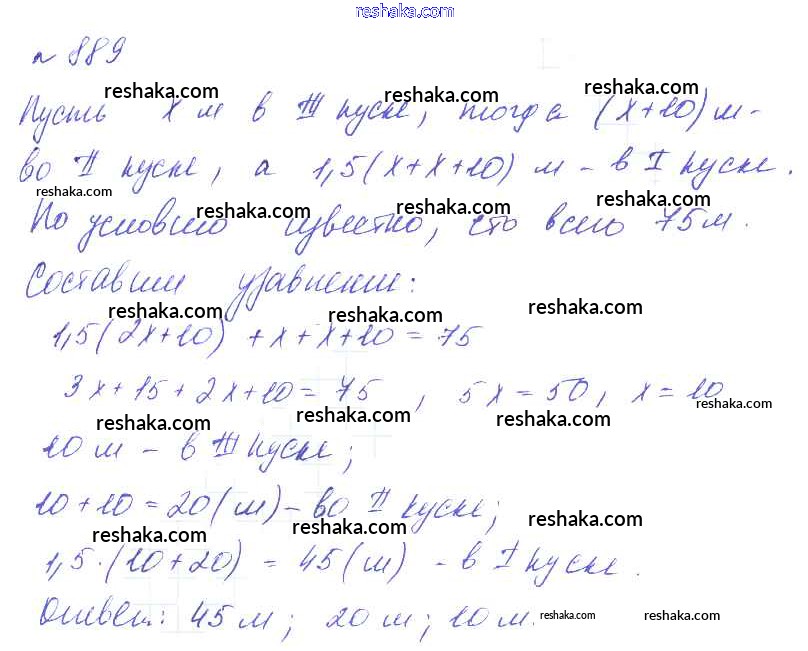 reshaka.com
№ 889
reshaka.com reshaka.com reshaka.com
Пусть x м в III куске, тогда (x+10) м -
во II куске, а 1,5(x+x+10) м - в I куске.
reshaka.com reshaka.com reshaka.com reshaka.com
По условию известно, что всего 75 м.
Составим уравнение:
reshaka.com reshaka.com reshaka.com
1,5(2x+10) + x + x + 10 = 75
3x + 15 + 2x + 10 = 75, 5x = 50, x = 10
reshaka.com reshaka.com reshaka.com reshaka.com
10 м - в III куске;
10 + 10 = 20 (м) - во II куске;
reshaka.com reshaka.com reshaka.com
1,5 · (10 + 20) = 45 (м) - в I куске.
Ответ: 45 м; 20 м; 10 м.
reshaka.com reshaka.com reshaka.com reshaka.com